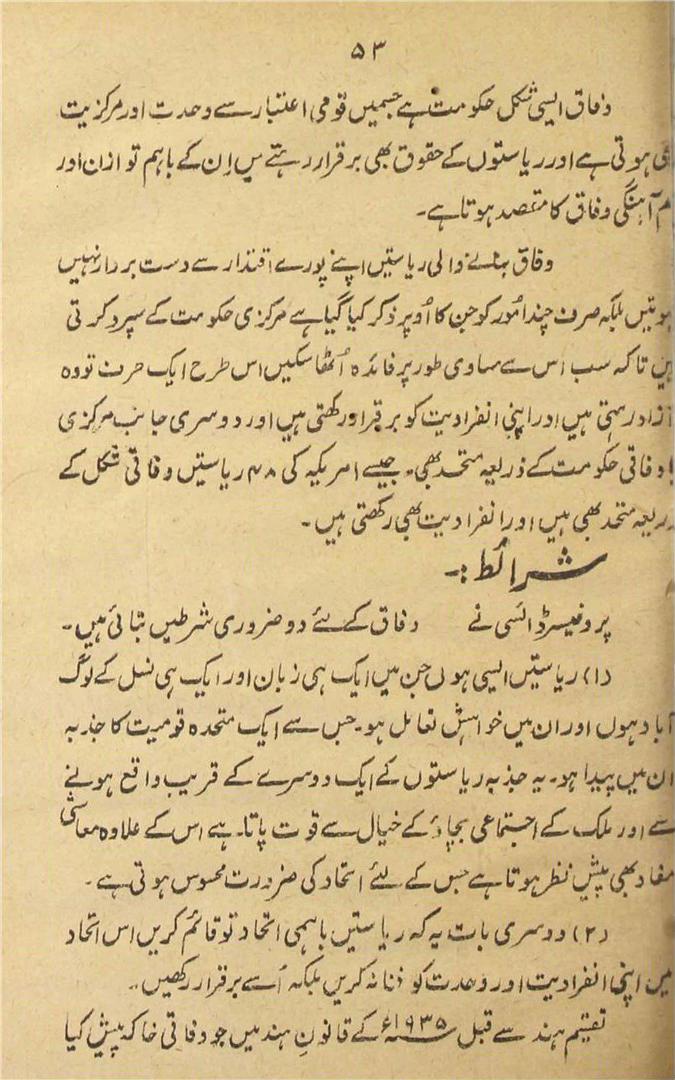 ۵۳
وفاق ایسی شکل حکومت ہے جسمیں قومی اعتبار سے وحدت اور مرکزیت
بھی ہوتی ہے اور ریاستوں کے حقوق بھی برقرار رہتے ہیں اِن کے باہم توازن اور
ہم آہنگی وفاق کا مقصد ہوتا ہے۔
وفاق بنانے والی ریاستیں اپنے پورے اقتدار سے دست بردار نہیں
ہوتیں بلکہ صرف چند امُور کو جن کا اُوپر ذکر کیا گیا ہے مرکزی حکومت کے سپرد کرتی
ہیں تاکہ سب اس سے مساوی طور پر فائدہ اُٹھا سکیں اس طرح ایک طرف تو وہ
آزاد رہتی ہیں اور اپنی انفرادیت کو برقرار رکھتی ہیں اور دوسری جانب مرکزی
یا وفاقی حکومت کے ذریعہ متحد بھی۔ جیسے امریکہ کی ۴۸ ریاستیں وفاقی شکل کے
ذریعہ متحد بھی ہیں اور انفرادیت بھی رکھتی ہیں۔
شرائط :۔
پروفیسر ڈائسی نے وفاق کے لئے دو ضروری شرطیں بتائی ہیں۔
(۱) ریاستیں ایسی ہوں جن میں ایک ہی زبان اور ایک ہی نسل کے لوگ
آباد ہوں اور ان میں خواہش تعامل ہو۔ جس سے ایک متحدہ قومیت کا جذبہ
ان میں پیدا ہو۔ یہ جذبہ ریاستوں کے ایک دوسرے کے قریب واقع ہونے
سے اور ملک کے اجتماعی بچاؤ کے خیال سے قوت پاتا ہے اس کے علاوہ معاشی
مفاد بھی پیشِ نظر ہوتا ہے جس کے لئے اتحاد کی ضرورت محسوس ہوتی ہے۔
(۲) دوسری بات یہ کہ ریاستیں باہمی اتحاد تو قائم کریں اس اتحاد
میں اپنی انفرادیت اور وحدت کو فنا نہ کریں بلکہ اُسے برقرار رکھیں۔
تقسیم ہند سے قبل ۱۹۳۵ء کے قانونِ ہند میں جو وفاقی خاکہ پیش کیا